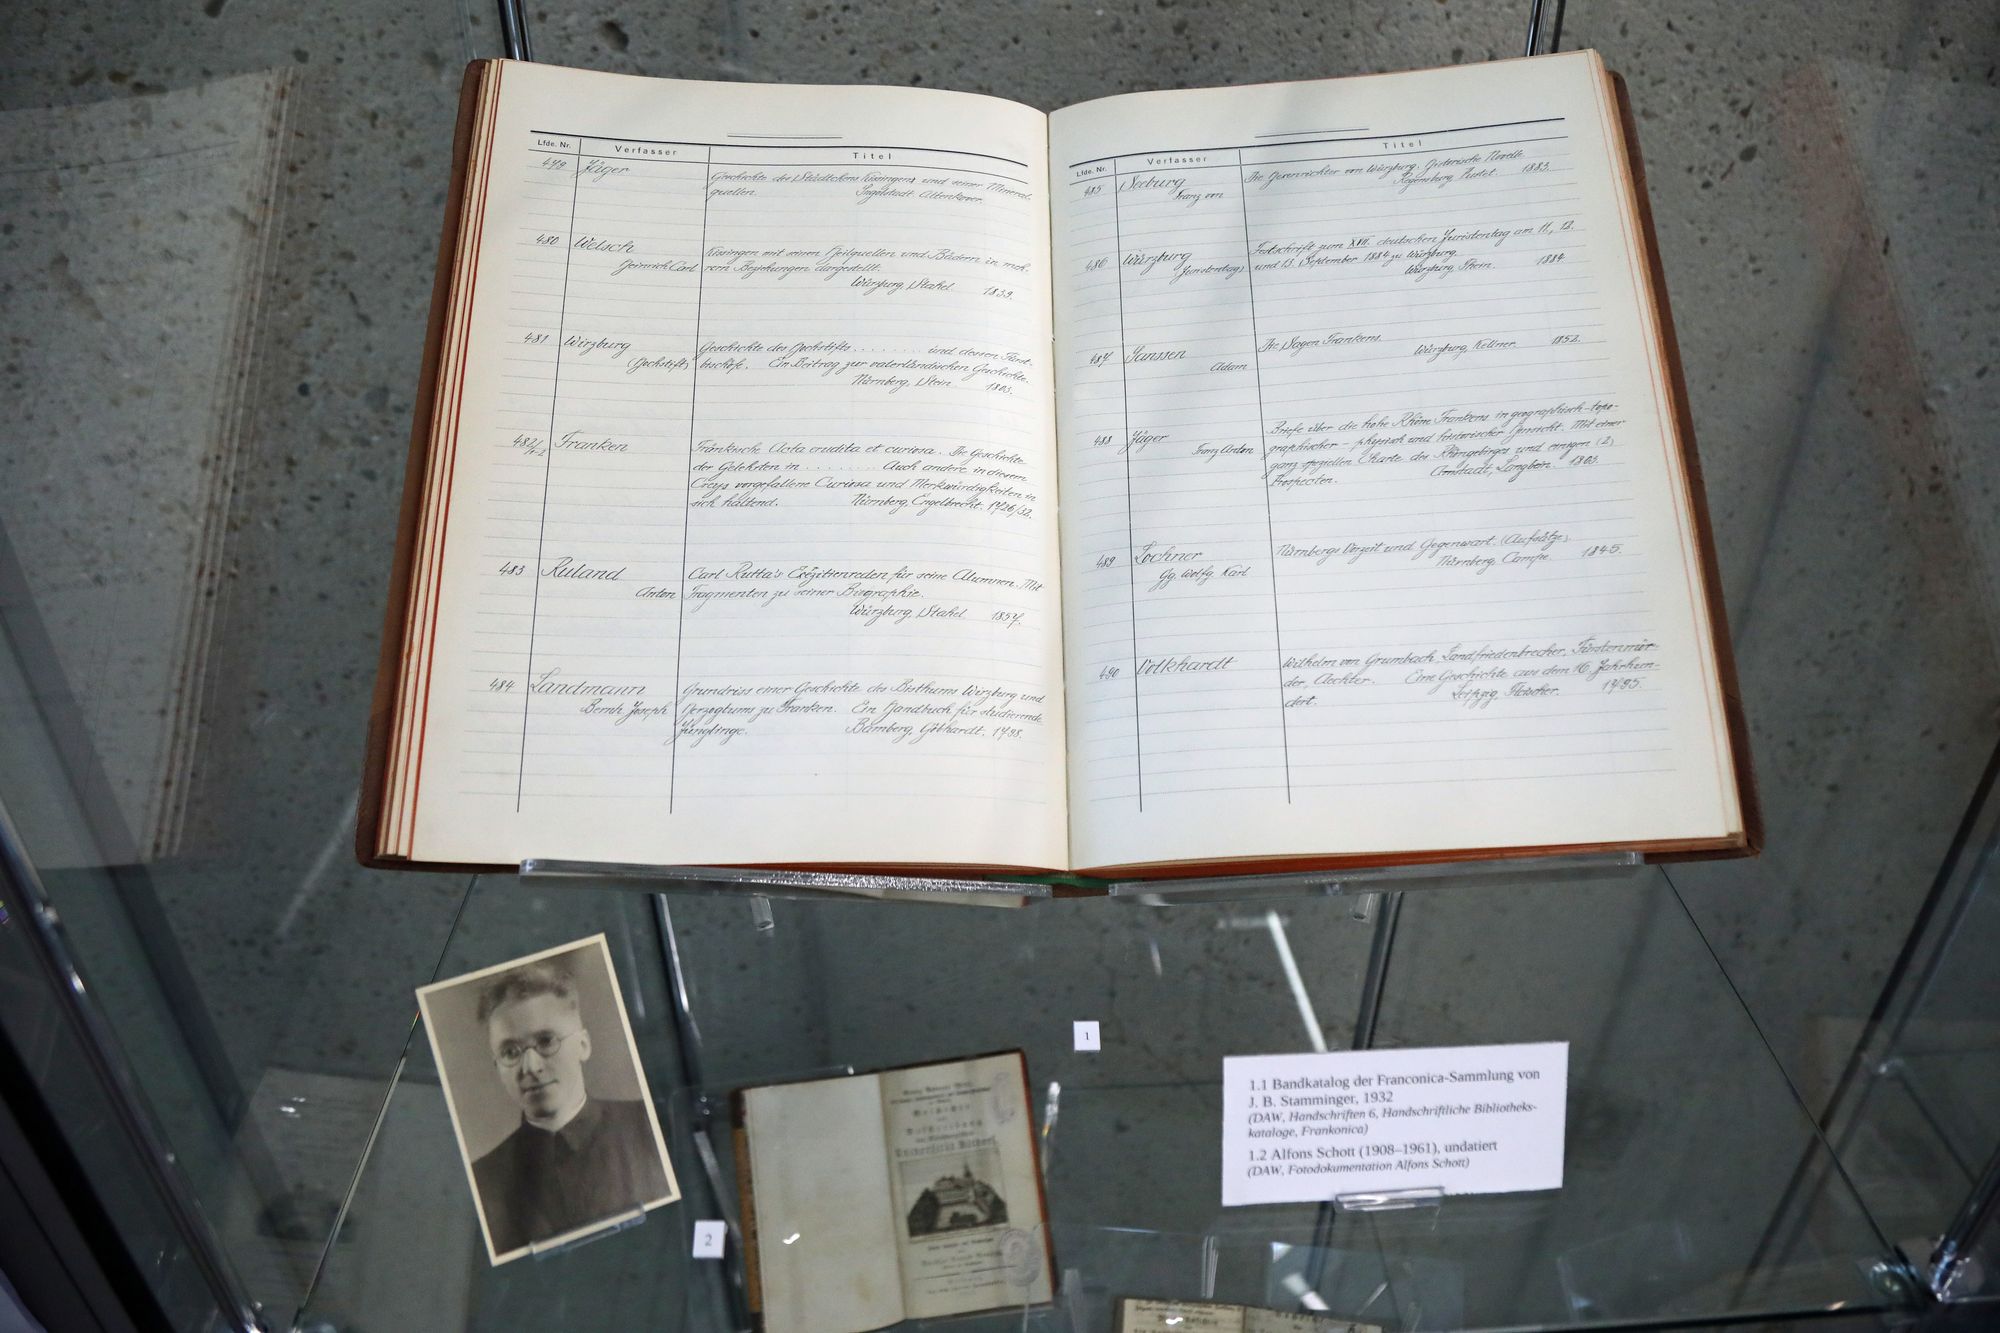 Lfde. Nr. Verfasser Titel
479 Jäger Geschichte des Städtchens Kissingens und seiner Mineral-
quellen. Ingolstadt. Attenkover.
480 Welsch Kissingen mit seinen Heilquellen und Bädern in meh-
Heinrich Carl rern Beziehungen dargestellt.
Würzburg, Stahel. 1839.
481 Wirzburg Geschichte des Hochstifts . . . . . . . . und dessen Fürst-
(Hochstift) bischöfe. Ein Beitrag zur vaterländischen Geschichte.
Nürnberg, Stein. 1803.
482/1-2 Franken Fränkische Acta erudita et curiosa. Die Geschichte
der Gelehrten in . . . . . . . . Auch andere in diesem
Creys vorgefallene Curiosa und Merkwürdigkeiten in
sich haltend. Nürnberg, Engelbrecht. 1726/32.
483 Ruland Carl Rutta's Exezitienreden für seine Alumnen. Mit
Anton Fragmenten zu seiner Biographie.
Würzburg, Stahel 1857.
484 Landmann Grundriss einer Geschichte des Bisthums Wirzburg und
Bernh. Joseph Herzogtums zu Franken. Ein Handbuch für studierende
Jünglinge. Bamberg, Göbhardt. 1798.
Lfde. Nr. Verfasser Titel
485 Seeburg Die Hexenrichter von Würzburg. Historische Novelle.
Franz von Regensburg, Pustet. 1883.
486 Würzburg Festschrift zum XVII. deutschen Juristentag am 11., 12.
(Juristentag) und 13. September 1884 zu Würzburg.
Würzburg, Thein. 1884
487 Janssen Die Sagen Frankens.
Adam Würzburg, Kellner. 1852.
488 Jäger Briefe über die hohe Rhöne Frankens in geographisch-topo-
Franz Anton graphischer – physisch und historischer Hinsicht. Mit einer
ganz speziellen Charte des Rhöngebirges und einigen (2)
Prospecten. Arnstadt, Langbein. 1803.
489 Lochner Nürnbergs Vorzeit und Gegenwart. (Aufsätze).
Gg. Wolfg. Karl Nürnberg, Campe. 1845.
490 Volkhardt Wilhelm von Grumbach, Landfriedenbrecher, Fürstenmör-
der, Aechter. Eine Geschichte aus dem 16. Jahrhun-
dert. Leipzig, Fleischer. 1795.
1
2
1.1 Bandkatalog der Franconica-Sammlung von
J. B. Stamminger, 1932
(DAW, Handschriften 6, Handschriftliche Bibliotheks-
kataloge, Frankonica)
1.2 Alfons Schott (1908–1961), undatiert
(DAW, Fotodokumentation Alfons Schott)